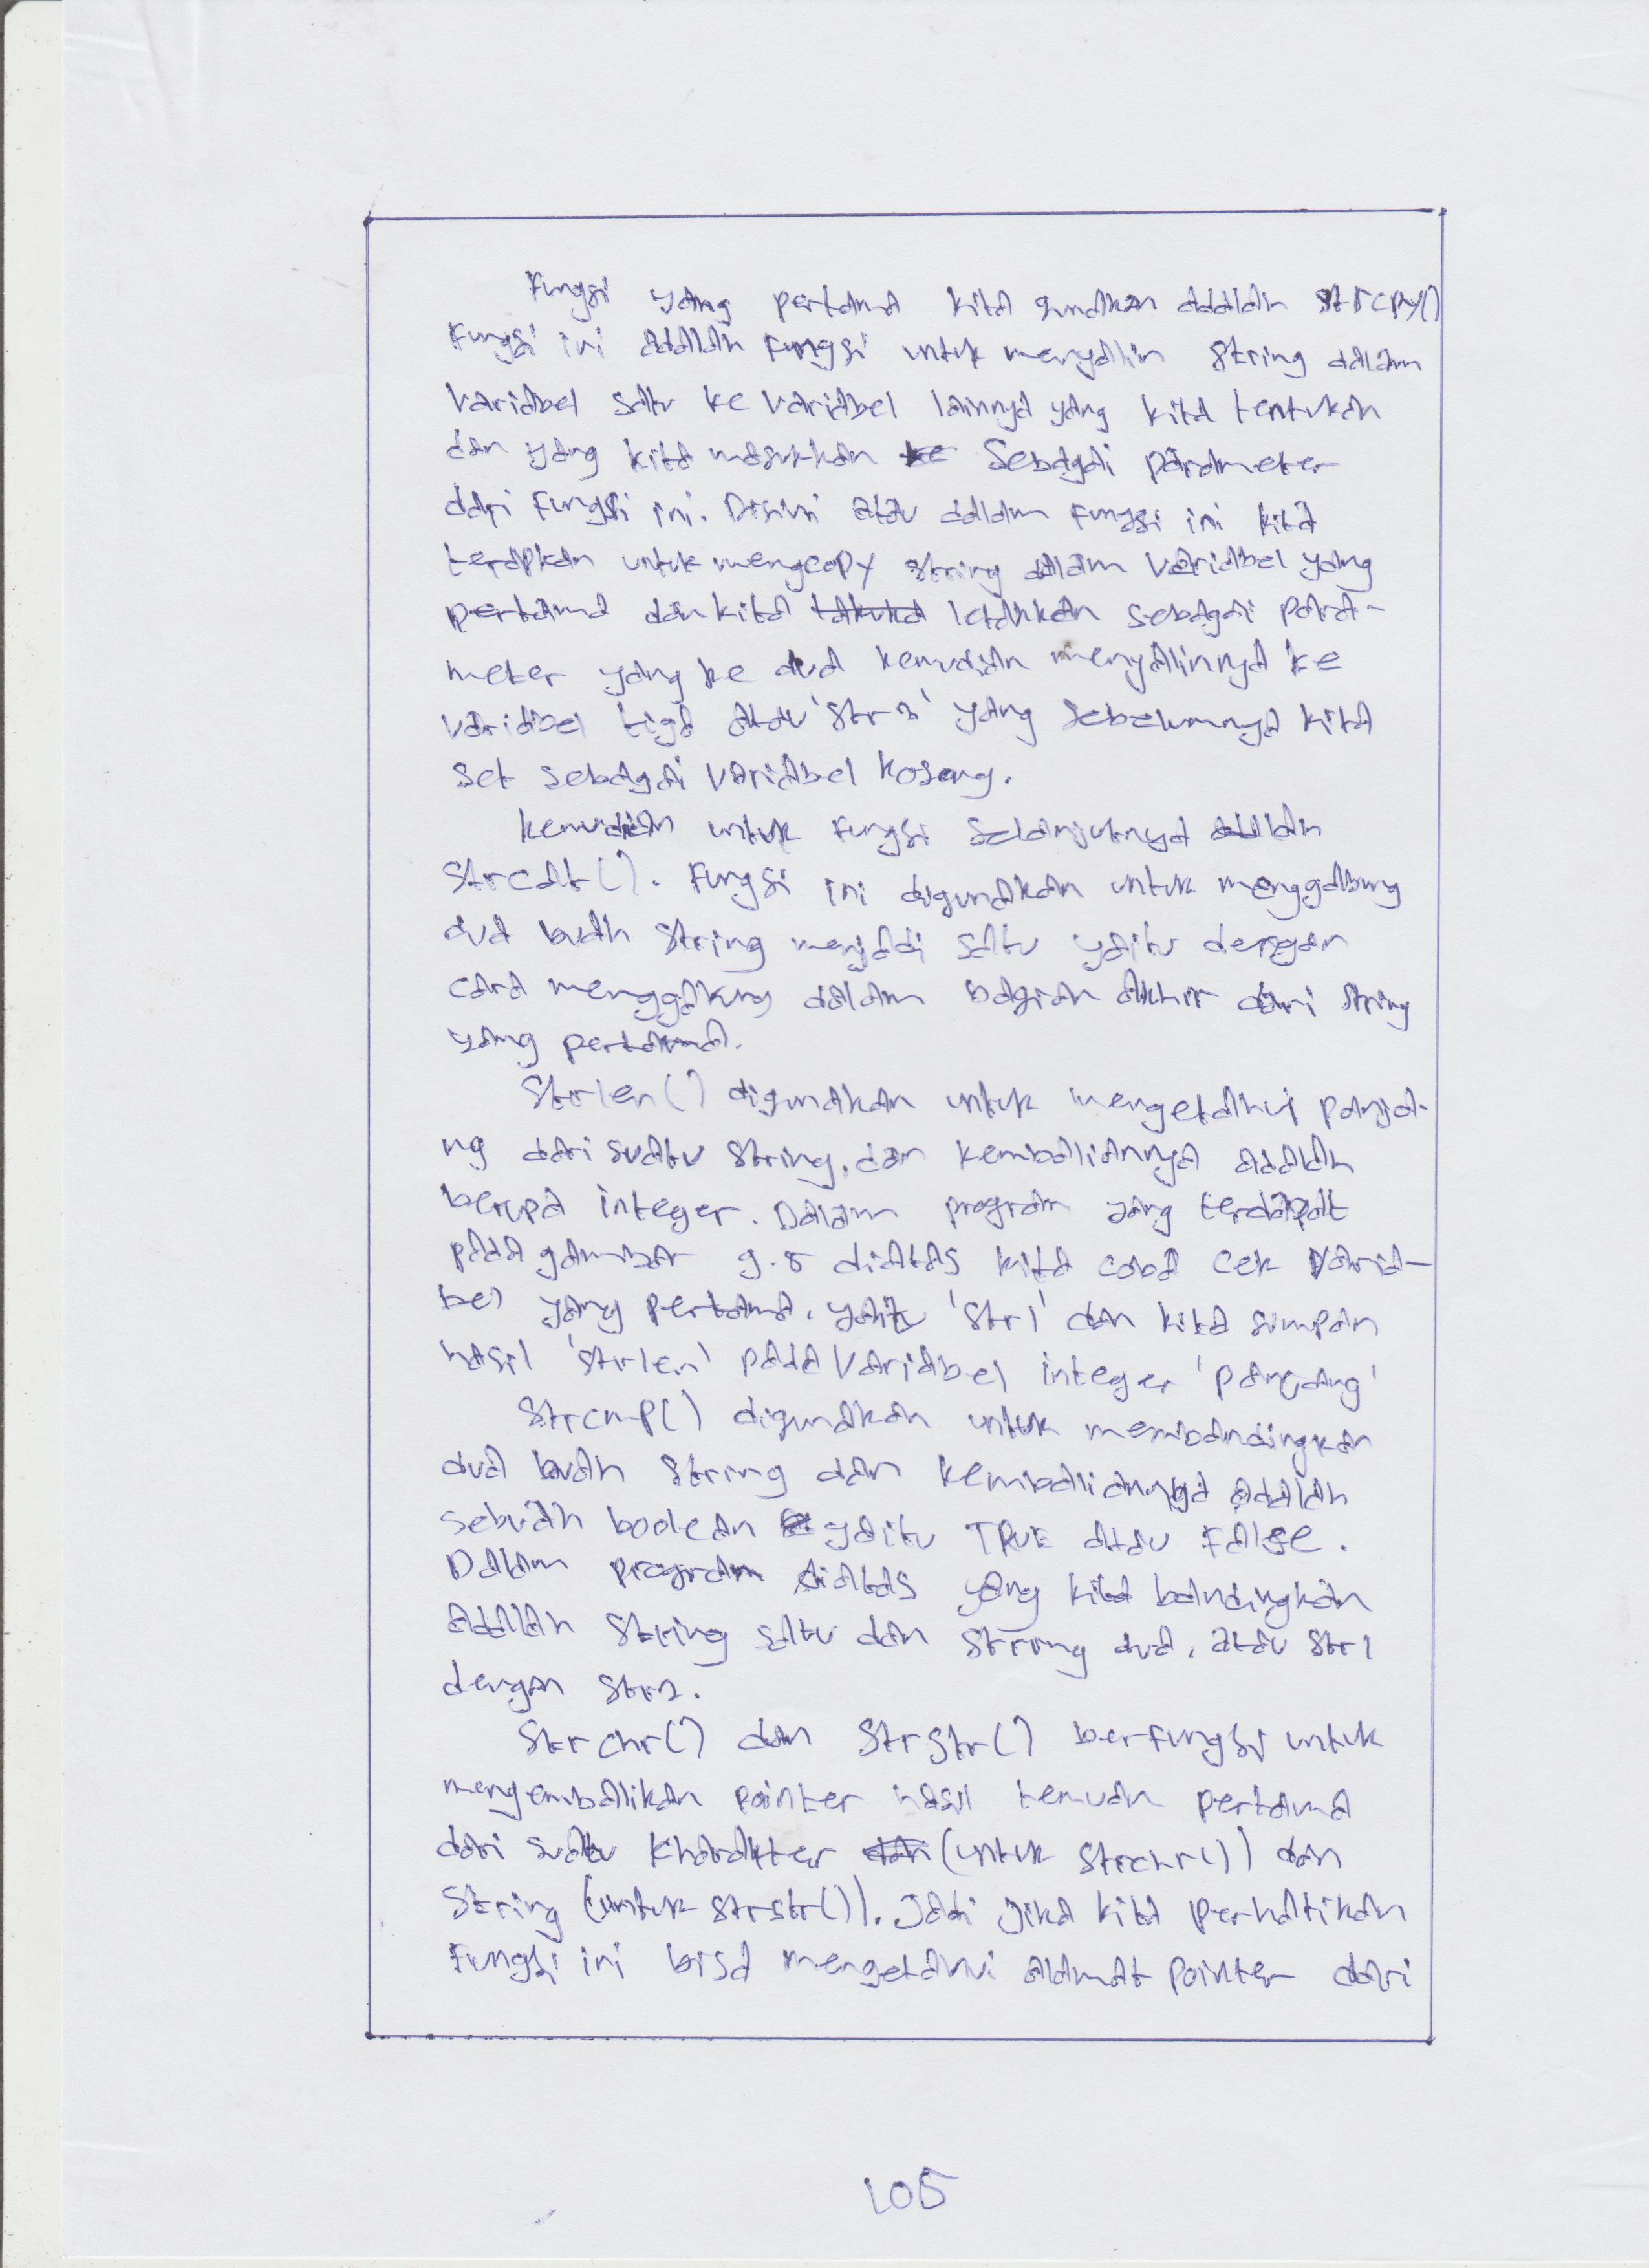 Fungsi yang pertama kita gunakan adalah strcpy()
Fungsi ini adalah fungsi untuk menyalin string dalam
Variabel satu ke variabel lainnya yang kita tentukan
dan yang kita masukkan Sebagai parameter
dari fungsi ini. Disini atau dalam fungsi ini kita
terapkan untuk mengcopy string dalam variabel yang
pertama dan kita letakkan sebagai para-
meter yang ke dua kemudian menyalinnya ke
variabel tiga atau 'str3' yang sebelumnya kita
set sebagai variabel kosong.
kemudian untuk fungsi selanjutnya adalah
Strcat(). Fungsi ini digunakan untuk menggabung
dua buah string menjadi satu yaitu dengan
cara menggabung dalam bagian akhir dari string
yang pertama.
Strlen() digunakan untuk mengetahui panja-
ng dari suatu string, dan kembaliannya adalah
berupa integer. Dalam program yang terdapat
pada gambar 9.8 diatas kita coba cek varia-
bel yang pertama, yaitu 'str1' dan kita simpan
hasil 'strlen' pada variabel integer 'panjang'
Strcmp() digunakan untuk membandingkan
dua buah string dan kembaliannya adalah
sebuah boolean yaitu TRUE atau False.
Dalam program diatas yang kita bandingkan
adalah string satu dan string dua, atau str1
dengan str2.
Strchr() dan Strstr() berfungsi untuk
mengembalikan pointer hasil temuan pertama
dari suatu kharakter (untuk strchr()) dan
String (untuk strstr()). Jadi jika kita perhatikan
Fungsi ini bisa mengetahui alamat pointer dari
105